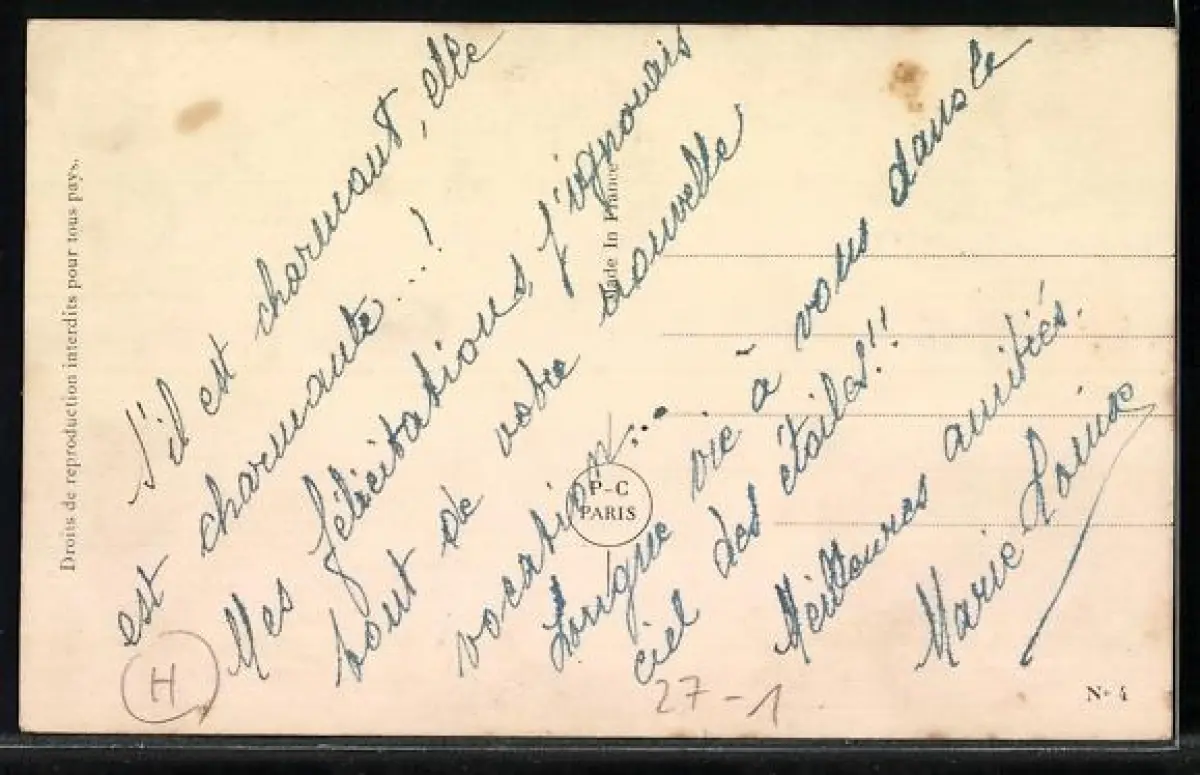 S'il est charmant, elle
est charmante...!
Mes félicitations, j'ignorais
tout de votre nouvelle
vocation...
Longue vie à vous dans le
ciel des étoiles!!
Meilleures amitiés.
Marie
Droits de reproduction interdits pour tous pays.
Made In France
P-C
PARIS
H
27-1
No 4